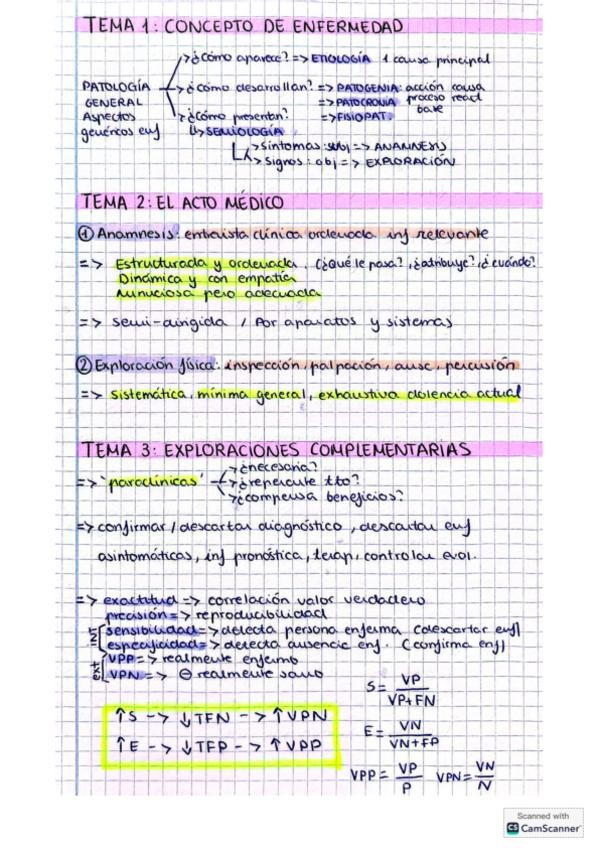 TEMA 1: CONCEPTO DE ENFERMEDAD
¿cómo aparece? => ETIOLOGÍA 1 causa principal
PATOLOGÍA ¿cómo desarrollan? => PATOGENIA: acción causa
GENERAL => PATOCRONIA proceso react
Aspectos base
¿cómo presentan? => FISIOPAT.
genéricos enf SEMIOLOGÍA
síntomas: subj => ANAMNESIS
signos: obj => EXPLORACIÓN
TEMA 2: EL ACTO MÉDICO
① Anamnesis: entrevista clínica ordenada inf relevante
=> Estructurada y ordenada. (¿Qué le pasa?, ¿atribuye?, ¿cuándo?
Dinámica y con empatía
Minuciosa pero adecuada
=> semi-dirigida / Por aparatos y sistemas
② Exploración física: inspección, palpación, ausc, percusión
=> sistemática, mínima general, exhaustiva dolencia actual
TEMA 3: EXPLORACIONES COMPLEMENTARIAS
¿necesaria?
=> "paraclínicas" ¿repercute tto?
¿compensa beneficios?
=> confirmar / descartar diagnóstico, descartar enf
asintomáticas, inf pronóstica, terap, controlar evol.
=> exactitud => correlación valor verdadero
precisión => reproducibilidad
int sensibilidad => detecta persona enferma (descartar enf)
especificidad => detecta ausencia enf. (confirma enf)
ext VPP => realmente enfermo
VPN => ⊖ realmente sano
S = VP / VP+FN
↑S -> ↓TFN -> ↑VPN
E = VN / VN+FP
↑E -> ↓TFP -> ↑VPP
VPP = VP / P VPN = VN / N
Scanned with
CS CamScanner